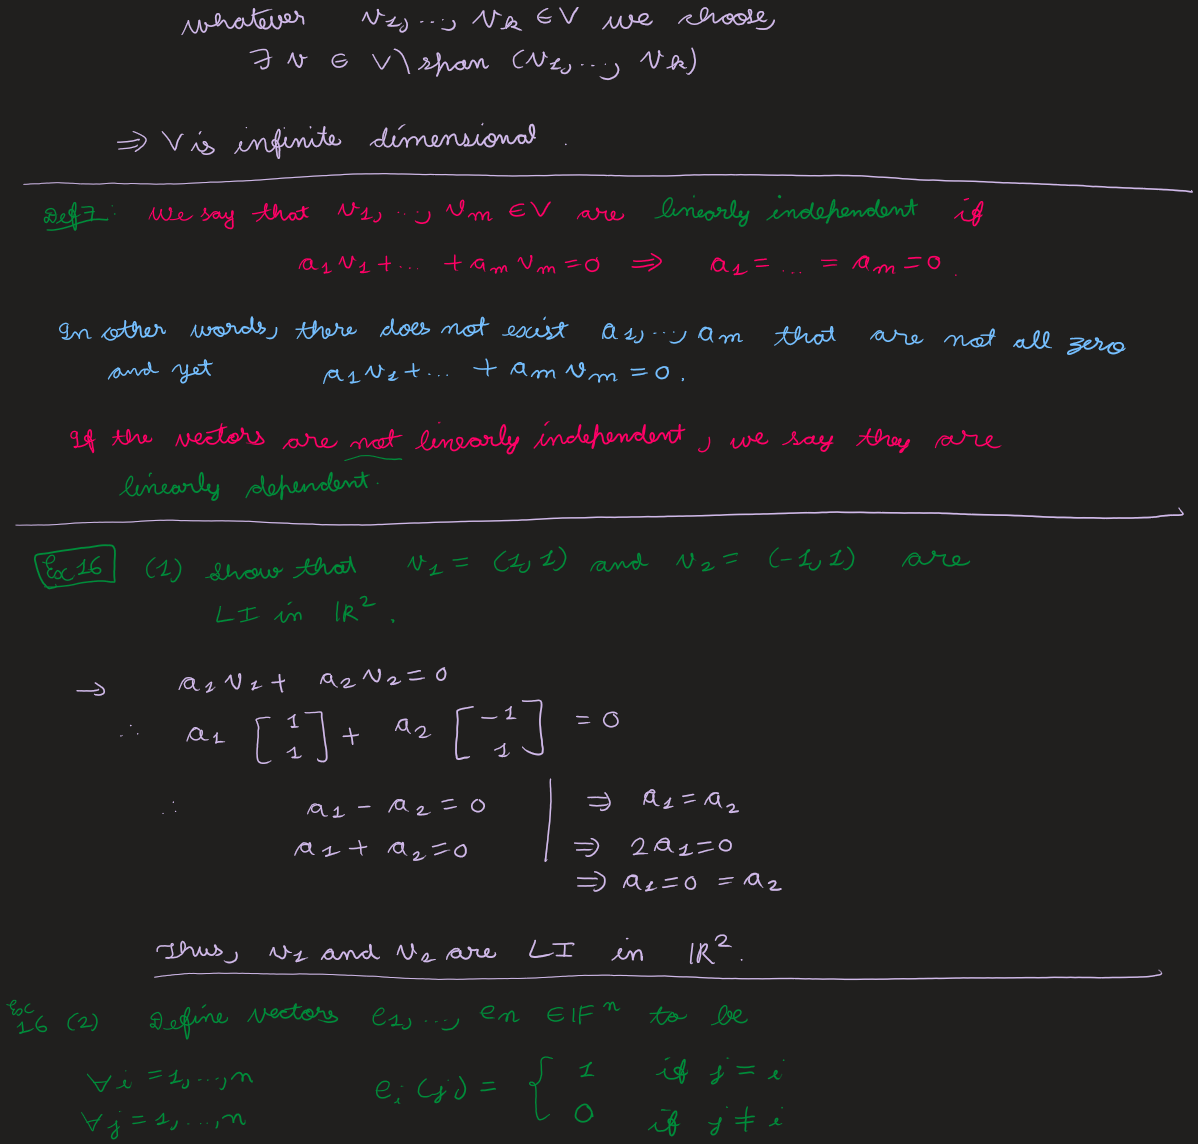 whatever v1, ..., vk ∈ V we choose,
∃ v ∈ V \ span (v1, ..., vk)
⇒ V is infinite dimensional.
Def 7: We say that v1, ..., vm ∈ V are linearly independent if
a1 v1 + ... + am vm = 0 ⇒ a1 = ... = am = 0.
In other words, there does not exist a1, ..., am that are not all zero
and yet a1 v1 + ... + am vm = 0.
If the vectors are not linearly independent, we say they are
linearly dependent.
Ex 16 (1) Show that v1 = (1, 1) and v2 = (-1, 1) are
LI in ℝ².
→ a1 v1 + a2 v2 = 0
∴ a1 [1 1] + a2 [-1 1] = 0
∴ a1 - a2 = 0 | ⇒ a1 = a2
a1 + a2 = 0 | ⇒ 2a1 = 0
⇒ a1 = 0 = a2
Thus, v1 and v2 are LI in ℝ².
Ex
16 (2) Define vectors e1, ..., en ∈ 𝔽ⁿ to be
∀i = 1, ..., n ei (j) = { 1 if j = i
∀j = 1, ..., n 0 if j ≠ i